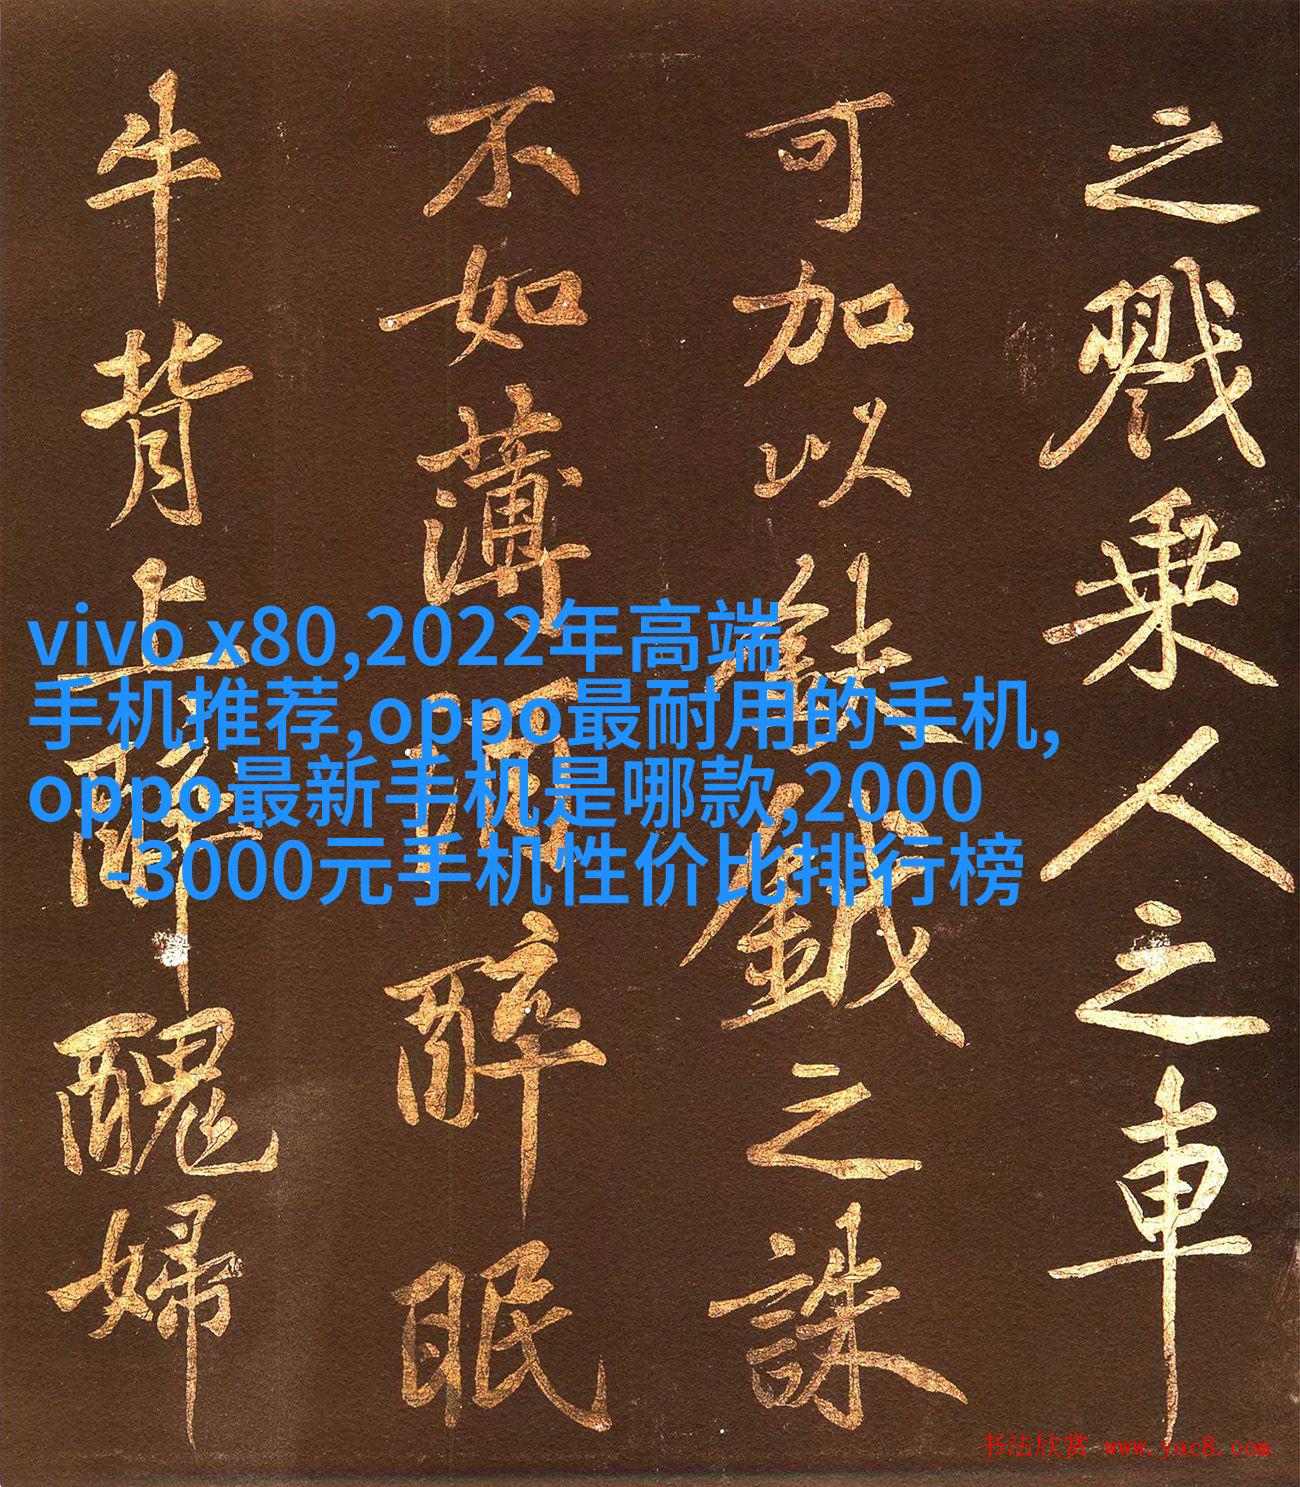 之戮乘人之車
可加以鉞之誅
不如薄醉眠
牛背上醉醜婦
vivo x80,2022年高端
手机推荐,oppo最耐用的手机,
oppo最新手机是哪款,2000
-3000元手机性价比排行榜
书法欣赏 www.yac8.com